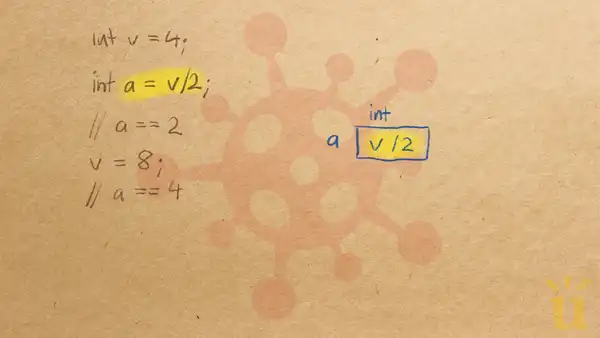 int v = 4;
int a = v/2;
// a == 2
v = 8;
// a == 4
int
a
v/2
ü